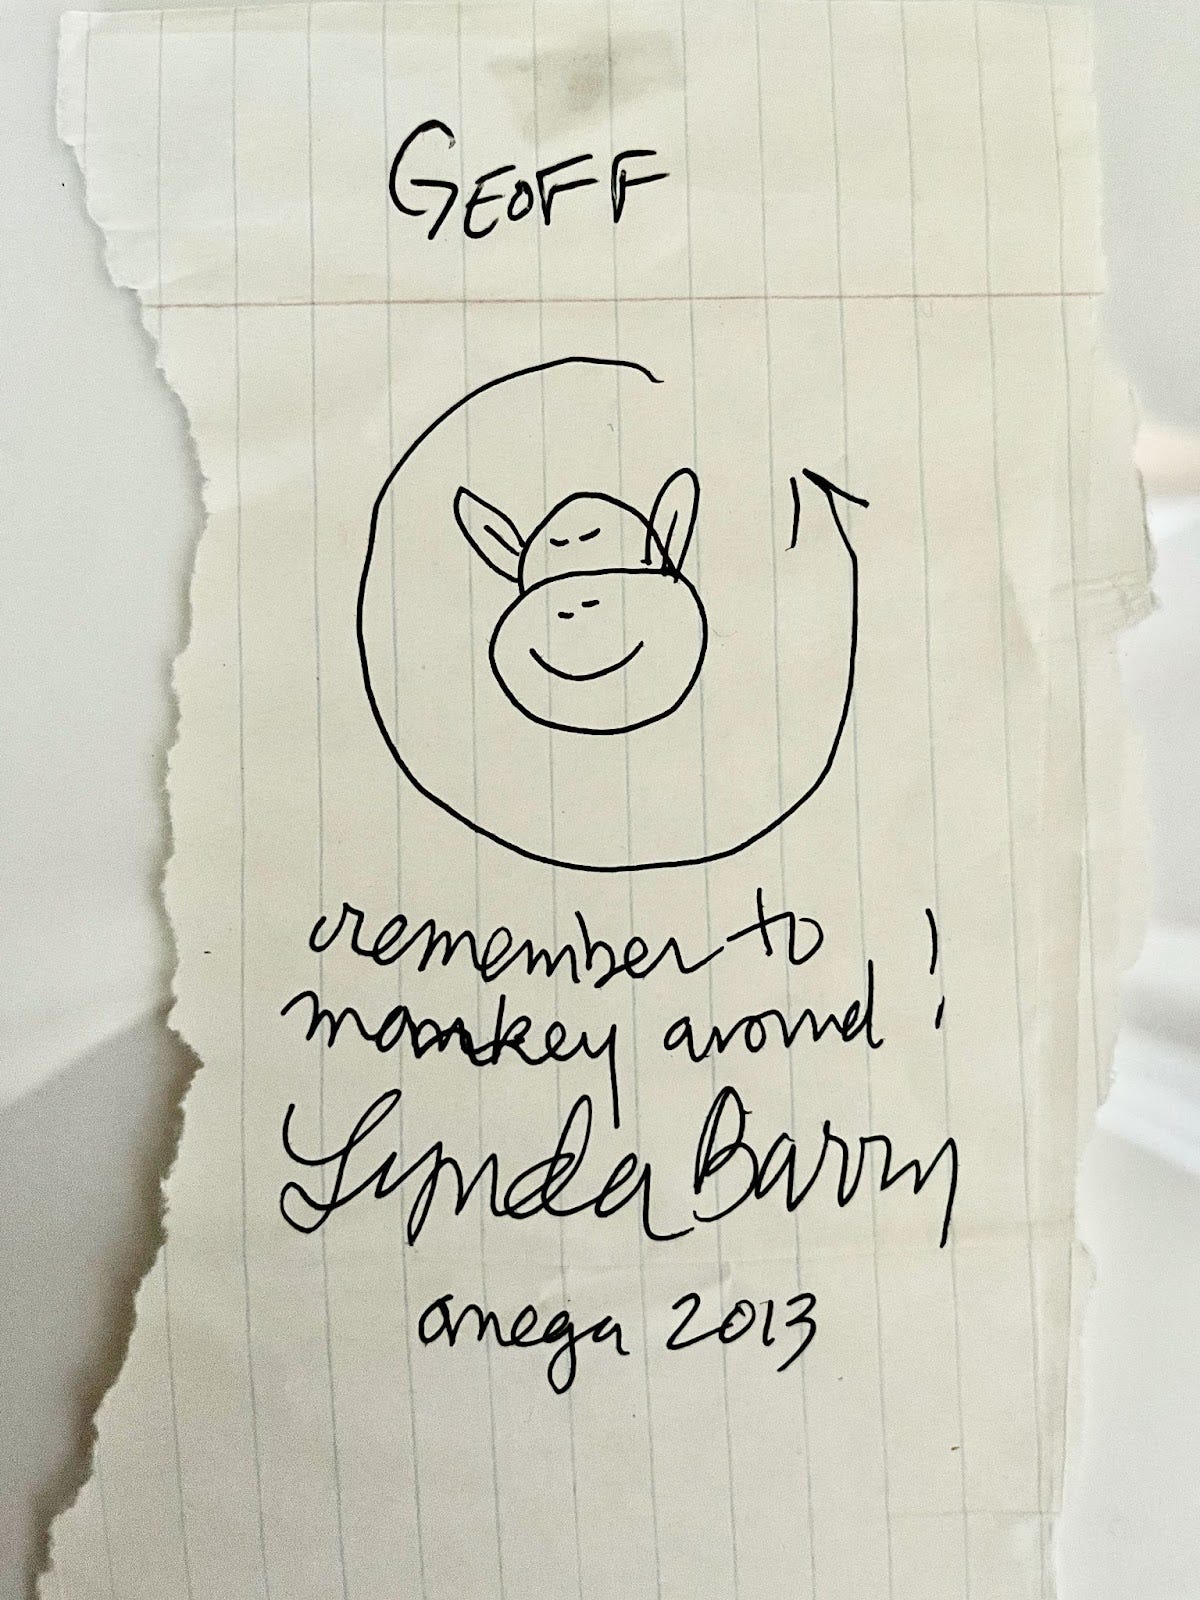 GEOFF
remember to
monkey around!
Lynda Barry
omega 2013